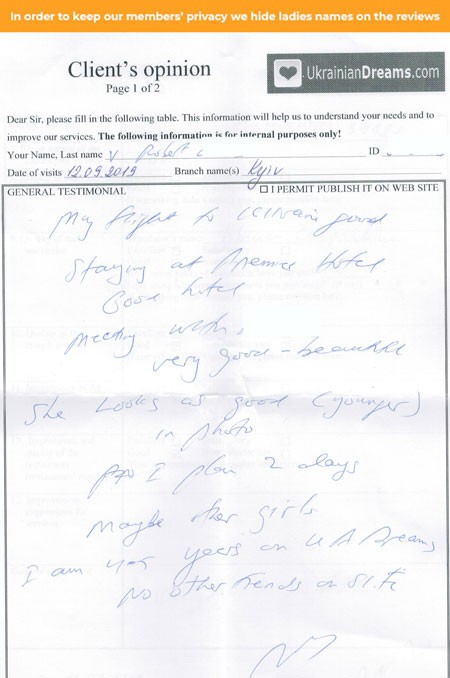 In order to keep our members' privacy we hide ladies names on the reviews
Client's opinion
Page 1 of 2
UkrainianDreams.com
Dear Sir, please fill in the following table. This information will help us to understand your needs and to
improve our services. The following information is for internal purposes only!
Your Name, Last name Robert ID
Date of visits 12.09.2019 Branch name(s) Kyiv
GENERAL TESTIMONIAL ☐ I PERMIT PUBLISH IT ON WEB SITE
My flight to good
Staying at Hotel
Good hotel
Meeting with
very good - beautiful
She Looks as good (younger)
in photo
I plan 2 days
Maybe other girls
I am years on UA Dreams
No other on